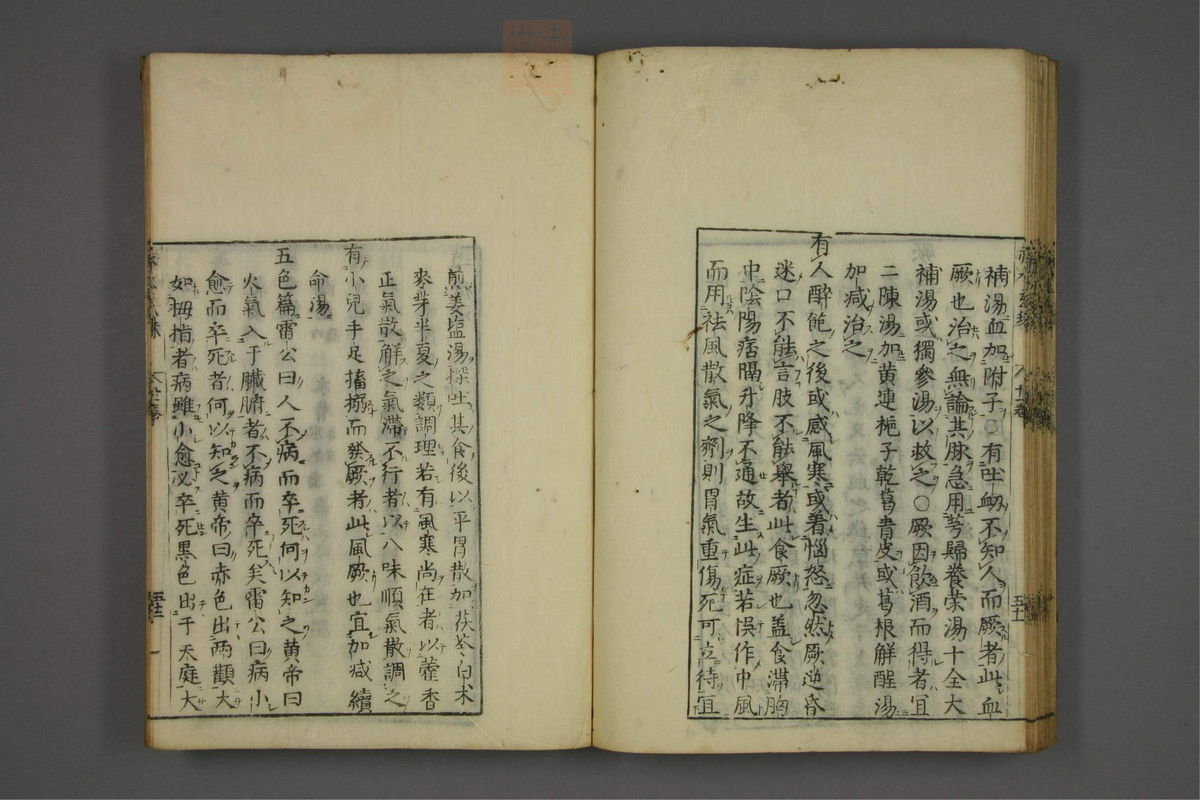 補湯血加附子○有吐衂不知人而厥者此血
厥也治之無論其脉急用芎歸養荣湯十全大
補湯或獨參湯以救之○厥因飲酒而得者宜
二陳湯加黄連梔子乾葛青皮或葛根解酲湯
加减治之
有人醉飽之後或感風寒或着惱怒忽然厥逆昏
迷口不能言肢不能舉者此食厥也盖食滯胸
中陰陽痞隔升降不通故生此症若悮作中風
而用祛風散氣之劑則胃氣重傷死可立待宜
煎姜塩湯探吐其食後以平胃散加茯苓白术
麥芽半夏之類調理若有風寒尚在者以藿香
正氣散解之氣滯不行者以八味順氣散調之
有小兒手足搐搦而発厥者此風厥也宜加减續
命湯
五色篇雷公曰人不病而卒死何以知之黄帝曰
火氣入于臓腑者不病而卒死矣雷公曰病小
愈而卒死者何以知之黄帝曰赤色出両顴大
如拇指者病雖小愈必卒死黒色出于天庭大